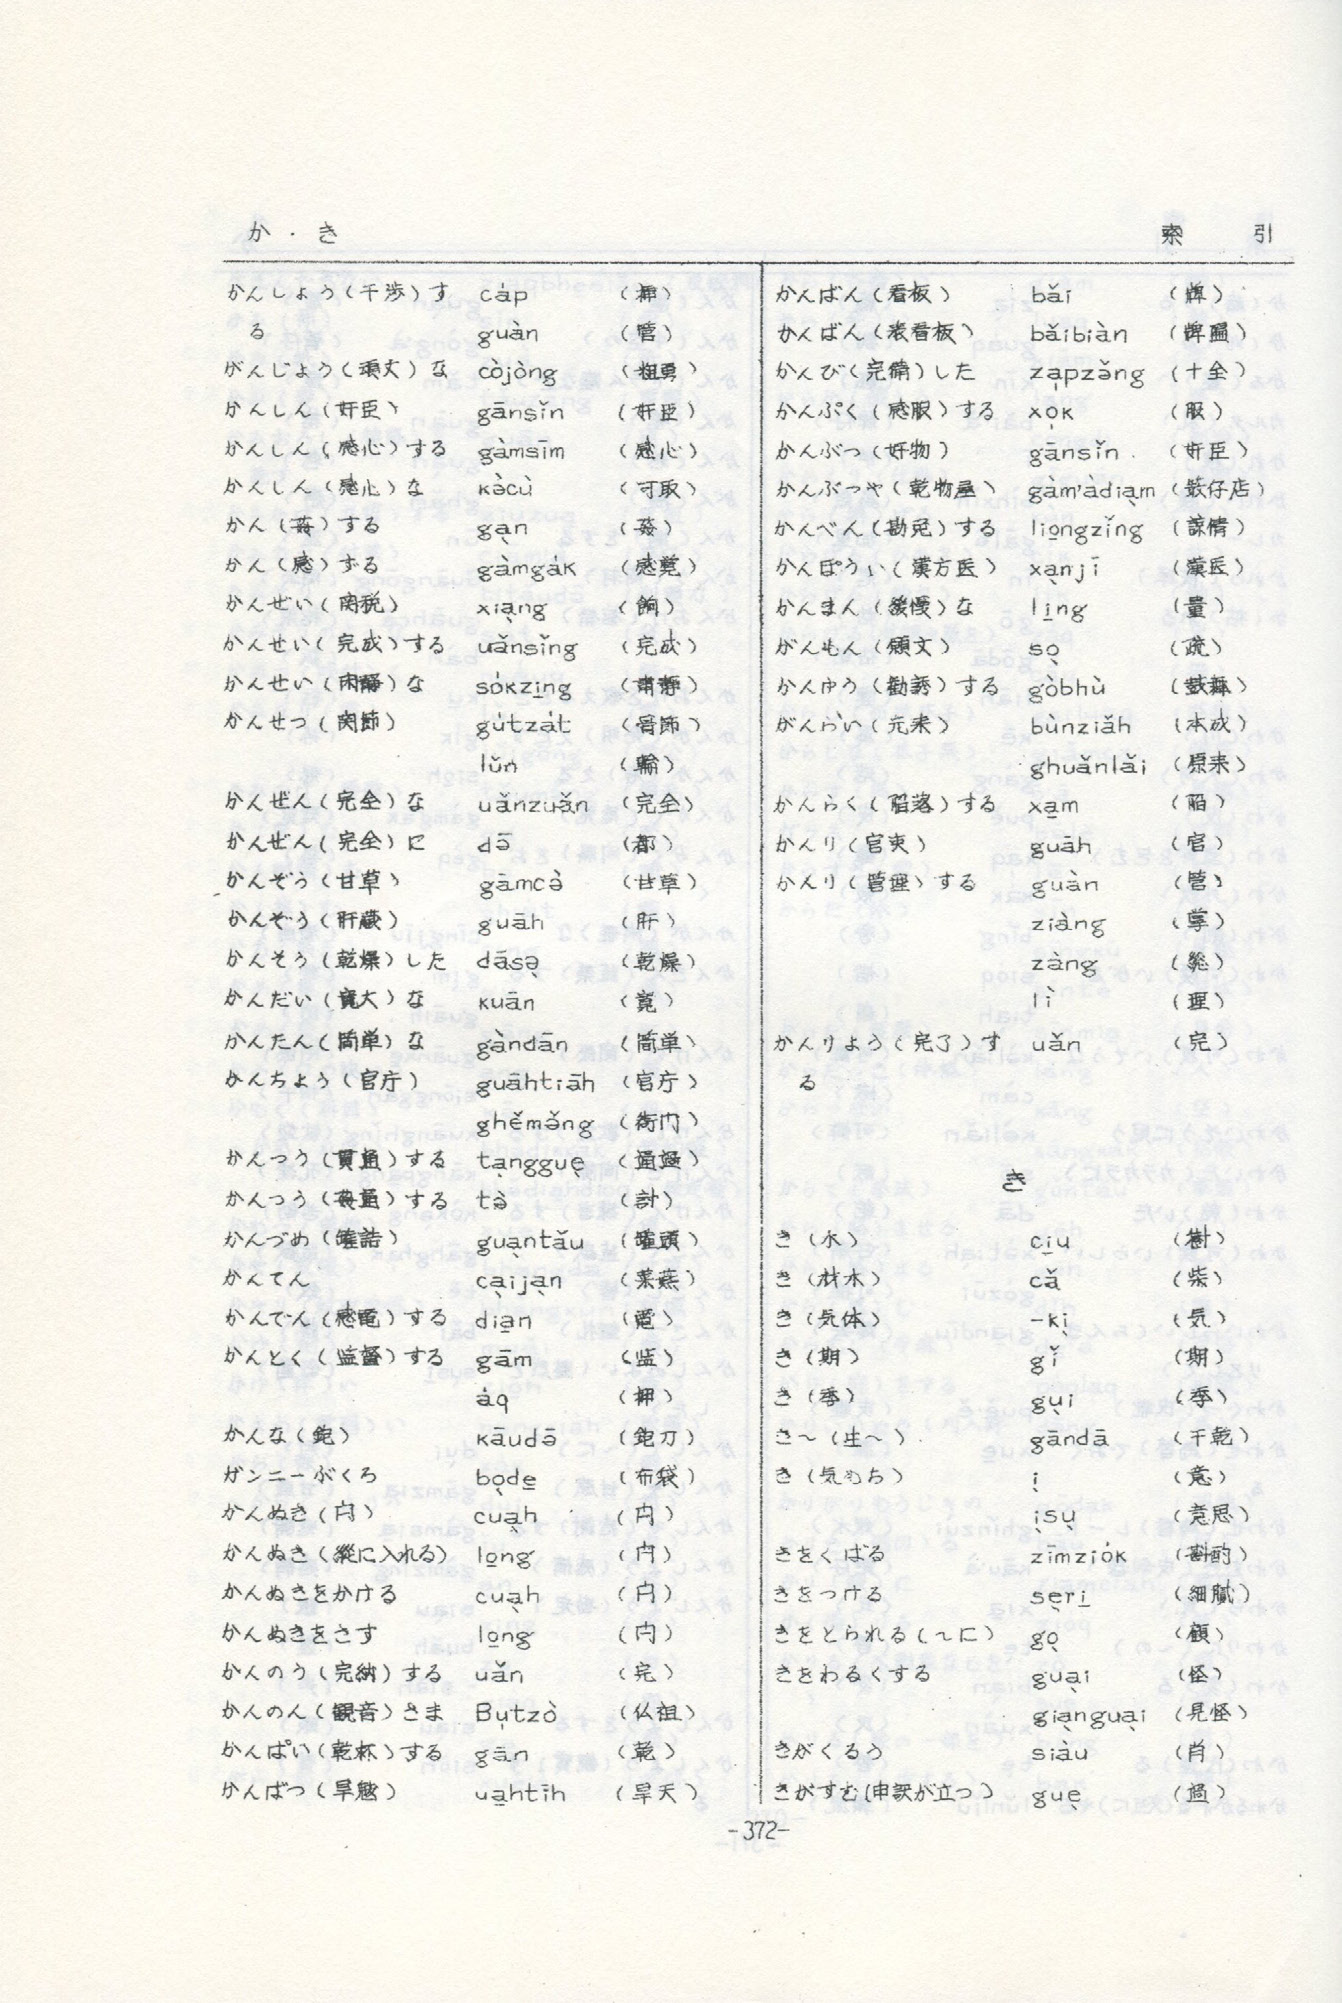 か・き
索 引
かんしょう(干渉)す cȧp (押)
る guàn (管)
がんじょう(頑丈)な còjòng (粗勇)
かんしん(奸臣) gānsǐn (奸臣)
かんしん(感心)する gàmsīm (感心)
かんしん(感心)な kə̀cù (可取)
かん( )する gạn
かん(感)ずる gàmgȧk (感覚)
かんぜい(関税) xiạng (餉)
かんせい(完成)する uǎnsǐng (完成)
かんせい( )な sȯkzi̱ng ( 静)
かんせつ(関節) gu̇tzȧt (骨節)
lǔn (輪)
かんぜん(完全)な uǎnzuǎn (完全)
かんぜん(完全)に də̄ (都)
かんぞう(甘草) gāmcə̀ (甘草)
かんぞう(肝蔵) guāh (肝)
かんそう(乾燥)した dāsə̣ (乾燥)
かんだい(寛大)な kuān (寛)
かんたん(簡単)な gàndān (简単)
かんちょう(官庁) guāhtiāh (官庁)
ghěmə̌ng (衙门)
かんつう(貫通)する tạngguẹ (通過)
かんつう( 通)する tə̀ (討)
かんづめ(罐詰) guạntǎu (罐頭)
かんてん cạijạn (菜燕)
かんでん(感電)する dia̱n (電)
かんとく(监督)する gām (监)
ȧq (押)
かんな(鉋) kāudə̄ (鉋刀)
ガンニーぶくろ bọde̱ (布袋)
かんぬき(闩) cuạh (闩)
かんぬき(縦に入れる) lo̱ng (闩)
かんぬきをかける cuạh (闩)
かんぬきをさす lo̱ng (闩)
かんのう(完納)する uǎn (完)
かんのん(観音)さま Bụtzò (仏祖)
かんぱい(乾杯)する gān (乾)
かんばつ(旱魃) ua̱htīh (旱天)
かんばん(看板) bǎi (牌)
かんばん(表看板) bǎibiàn (牌匾)
かんび(完備)した zạpzə̌ng (十全)
かんぷく(感服)する xọk (服)
かんぶつ(奸物) gānsǐn (奸臣)
かんぶつや(乾物屋) gàm'àdiạm ( 仔店)
かんべん(勘免)する lio̱ngzǐng (諒情)
かんぽうい(漢方医) xạnjī (漢医)
かんまん(緩慢)な li̱ng (量)
がんもん(願文) sọ (疏)
かんゆう(勧誘)する gòbhù (鼓舞)
がんらい(元来) bùnziǎh (本成)
ghuǎnlǎi (原来)
かんらく(陥落)する xa̱m (陥)
かんり(官吏) guāh (官)
かんり(管理)する guàn (管)
ziàng (掌)
zàng (総)
lì (理)
かんりょう(完了)す uǎn (完)
る
き
き(木) ci̱u (樹)
き(材木) cǎ (柴)
き(気体) -kị (気)
き(期) gǐ (期)
き(季) gụi (季)
き〜(生〜) gāndā (干乾)
き(気もち) ị (意)
ịsụ (意思)
きをくばる zīmziȯk (斟酌)
きをつける sẹri̱ (細膩)
きをとられる(〜に) gọ (顧)
きをわるくする guại (怪)
giạnguại (見怪)
きがくるう siàu (肖)
きがすむ(申訳が立つ) guẹ (過)
-372-